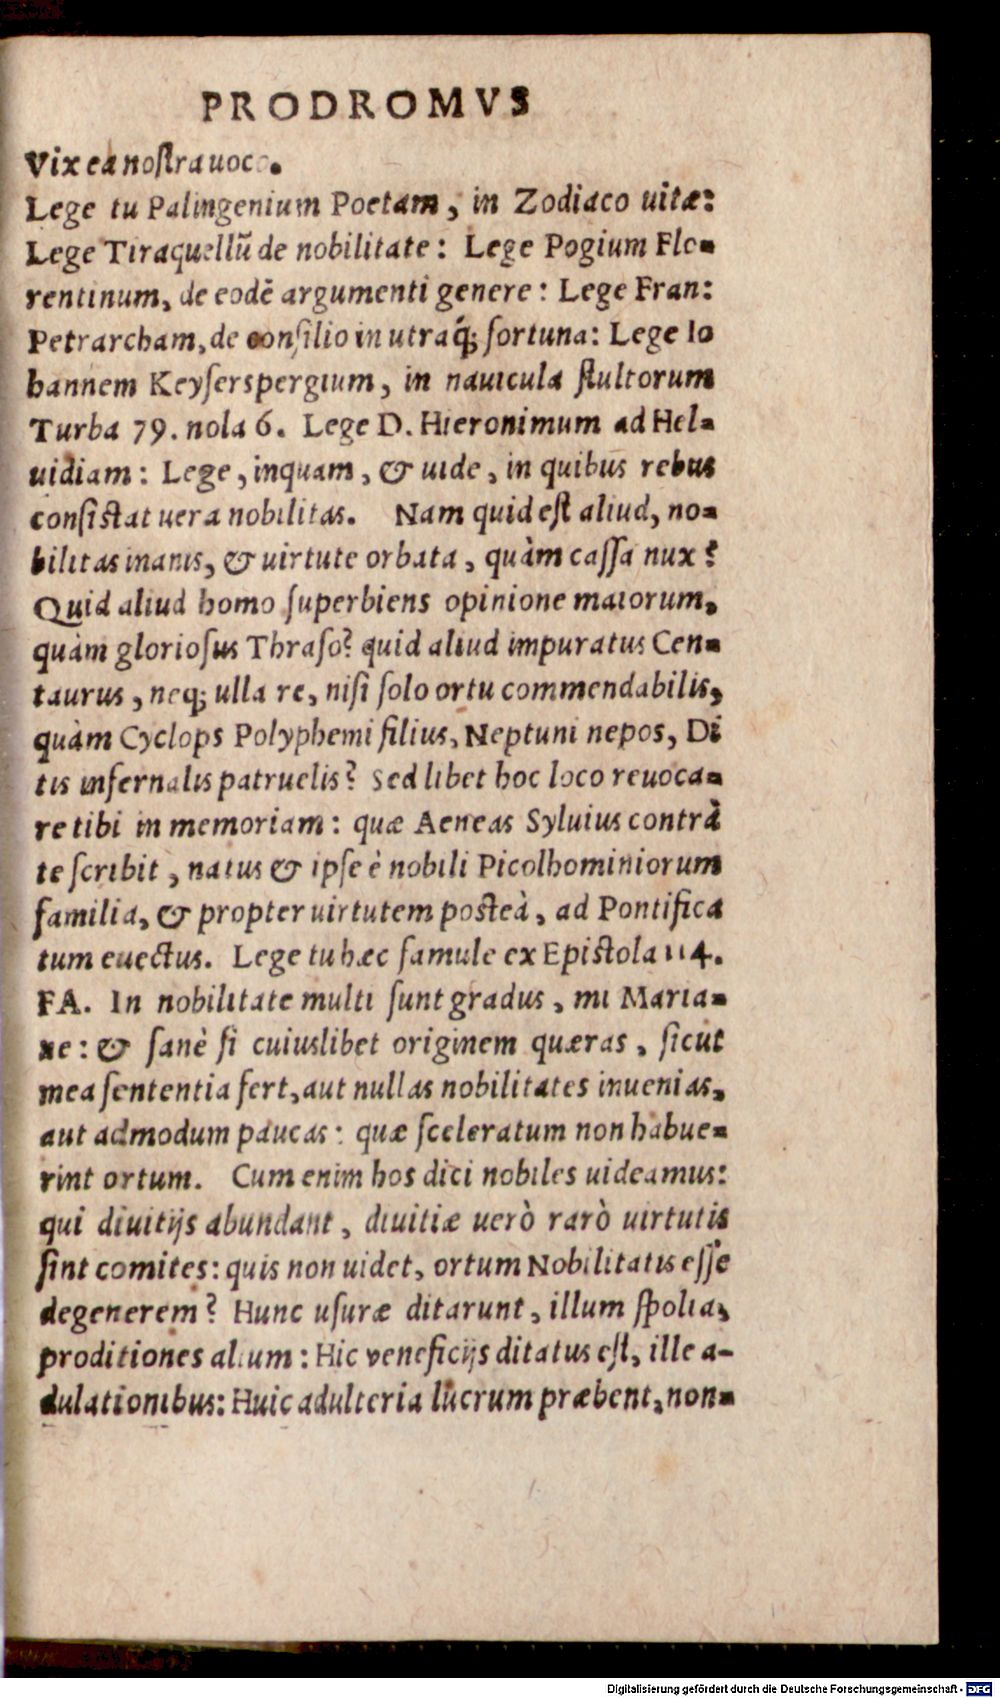 PRODROMVS
Vix ea nostra uoco.
Lege tu Palingenium Poetam, in Zodiaco uitæ:
Lege Tiraquellũ de nobilitate: Lege Pogium Flo-
rentinum, de eodẽ argumenti genere: Lege Fran:
Petrarcham, de consilio in utraq́; fortuna: Lege Io
hannem Keyserspergium, in nauicula stultorum
Turba 79. nola 6. Lege D. Hieronimum ad Hel-
uidiam: Lege, inquam, & uide, in quibus rebus
consistat uera nobilitas. Nam quid est aliud, no-
bilitas inanis, & uirtute orbata, quàm cassa nux?
Quid aliud homo superbiens opinione maiorum,
quàm gloriosus Thraso? quid aliud impuratus Cen-
taurus, neq; ulla re, nisi solo ortu commendabilis,
quàm Cyclops Polyphemi filius, Neptuni nepos, Di
tis infernalis patruelis? Sed libet hoc loco reuoca-
re tibi in memoriam: quæ Aeneas Syluius contrà
te scribit, natus & ipse è nobili Picolhominiorum
familia, & propter uirtutem posteà, ad Pontifica
tum euectus. Lege tu hæc famule ex Epistola 114.
FA. In nobilitate multi sunt gradus, mi Maria-
ne: & sanè si cuiuslibet originem quæras, sicut
mea sententia fert, aut nullas nobilitates inuenias,
aut admodum paucas: quæ sceleratum non habue-
rint ortum. Cum enim hos dici nobiles uideamus:
qui diuitijs abundant, diuitiæ uerò rarò uirtutis
sint comites: quis non uidet, ortum Nobilitatis esse
degenerem? Hunc usuræ ditarunt, illum spolia,
proditiones alium: Hic veneficijs ditatus est, ille a-
dulationibus: Huic adulteria lucrum præbent, non-
Digitalisierung gefördert durch die Deutsche Forschungsgemeinschaft - DFG